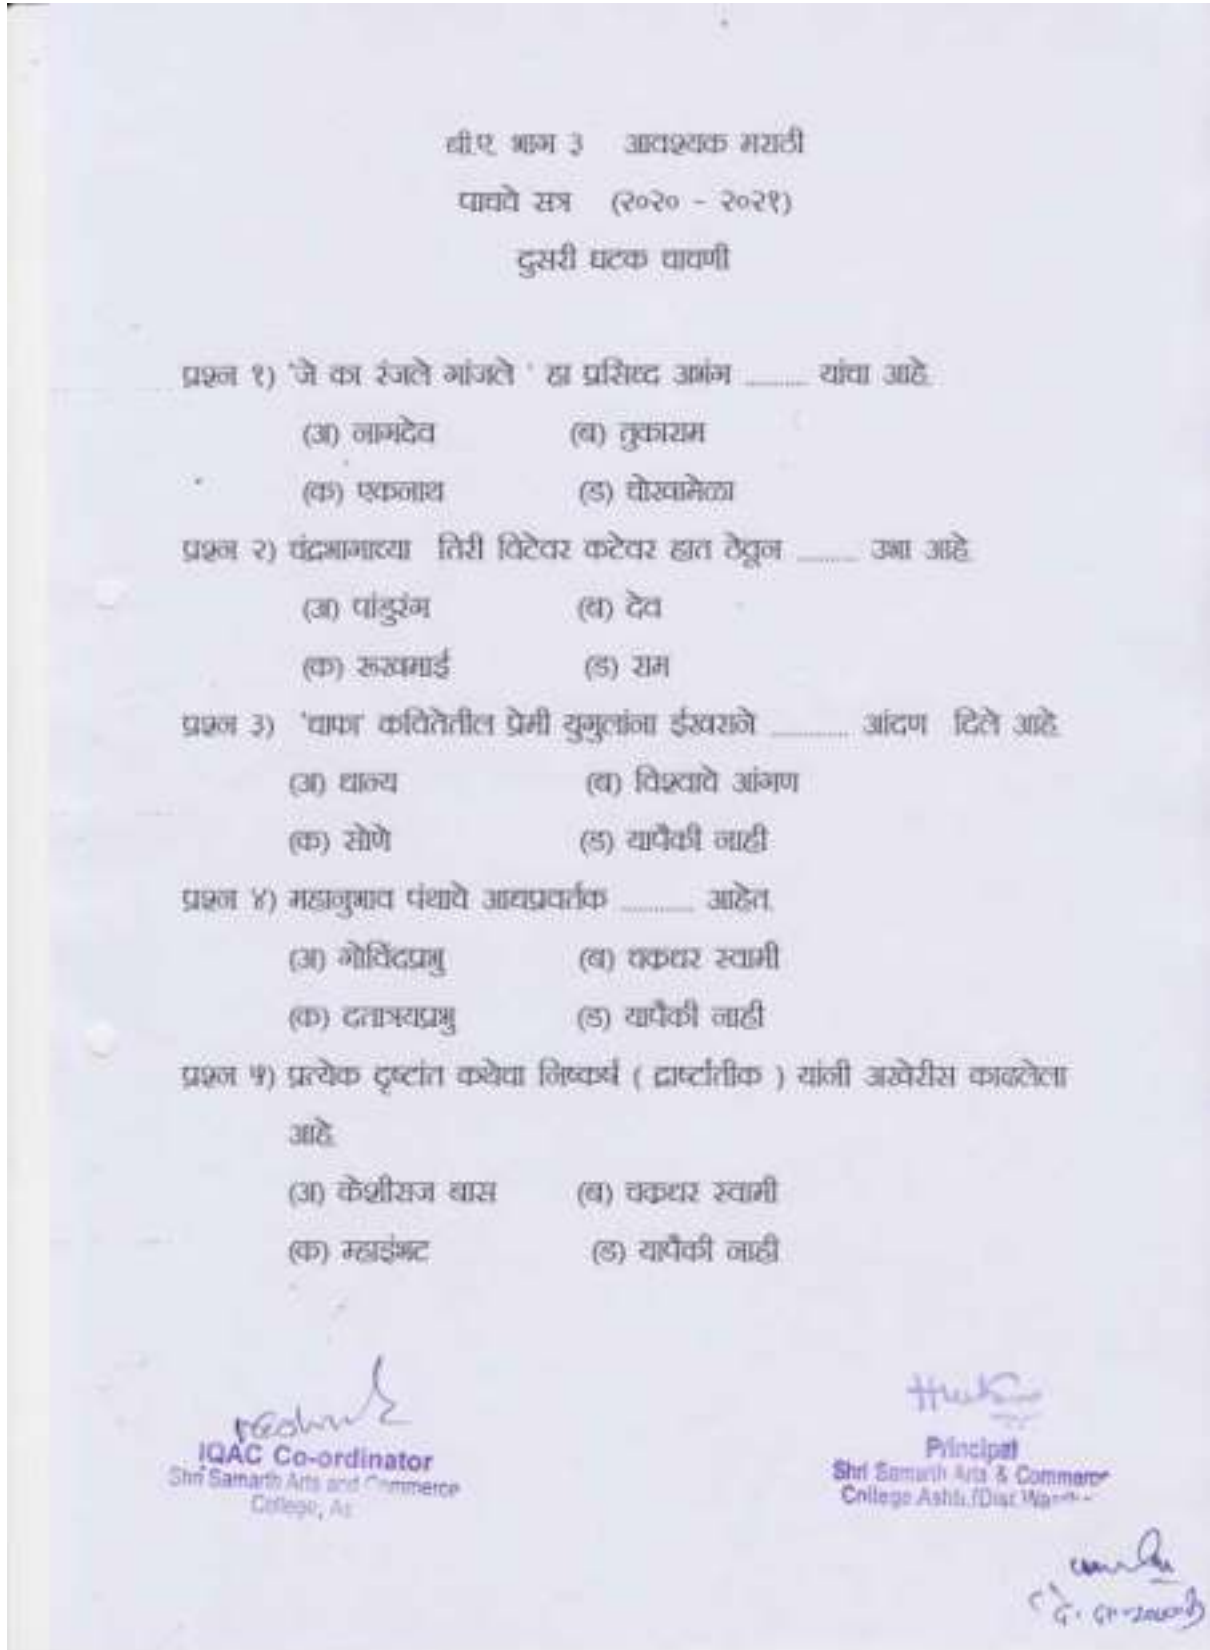 बी.ए. भाग ३ आवश्यक मराठी
पाचवे सत्र (२०२० - २०२१)
दुसरी घटक चाचणी
प्रश्न १) 'जे का रंजले गांजले ' हा प्रसिध्द अभंग ......... यांचा आहे.
(अ) नामदेव (ब) तुकाराम
(क) एकनाथ (ड) चोखामेळा
प्रश्न २) चंद्रभागाच्या तिरी विटेवर कटेवर हात ठेवून ......... उभा आहे.
(अ) पांडुरंग (ब) देव
(क) रूखमाई (ड) राम
प्रश्न ३) 'चाफा' कवितेतील प्रेमी युगुलांना ईश्वराने ........... आंदण दिले आहे.
(अ) धान्य (ब) विश्वाचे आंगण
(क) सोणे (ड) यापैकी नाही
प्रश्न ४) महानुभाव पंथाचे आद्यप्रवर्तक ........... आहेत.
(अ) गोविंदप्रभु (ब) चक्रधर स्वामी
(क) दतात्रयप्रभु (ड) यापैकी नाही
प्रश्न ५) प्रत्येक दृष्टांत कथेचा निष्कर्ष ( द्राष्टांतीक ) यांनी अखेरीस काढलेला
आहे.
(अ) केशीराज बास (ब) चक्रधर स्वामी
(क) म्हाइंभट (ड) यापैकी नाही
IQAC Co-ordinator
Shri Samarth Arts and Commerce
College,
Principal
Shri Samarth Arts & Commerce
College Ashti (Dist